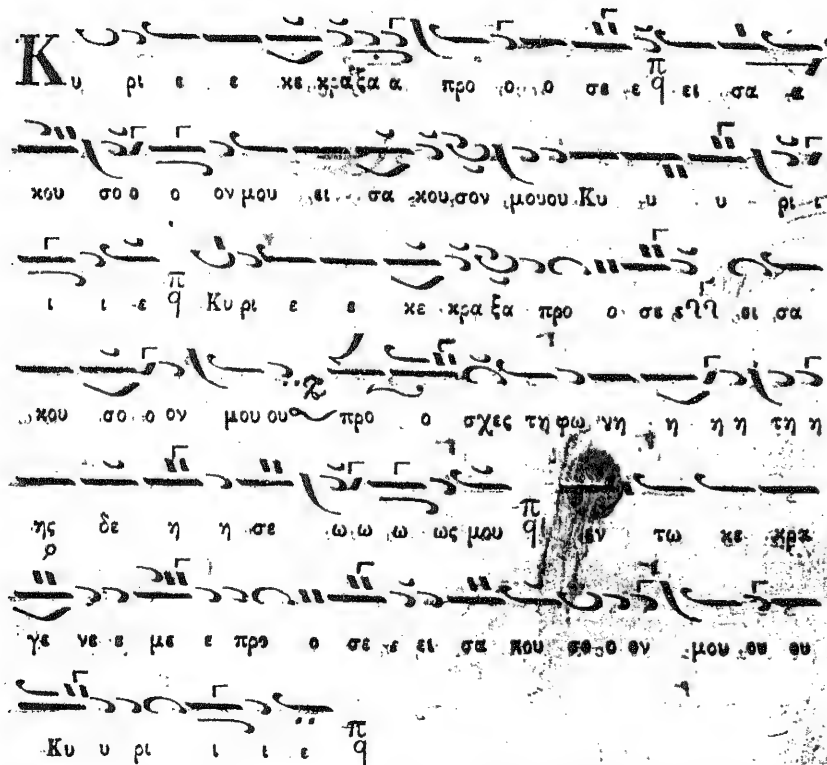 Κυ ρι ε ε κε κρα ξα α προ ο ο σε ε π q ει σα α
κου σο ο ο ον μου ει σα κου σον μουου Κυ υ υ ρι ι
ι ι ε π q Κυ ρι ε ε κε κρα ξα προ ο σε ε ει σα
κου σο ο ον μου ου προ ο σχες τη φω νη η η η τη η
ης δε η η σε ω ω ω ως μου π q εν τω κε κρα
γε νε ε με ε προ ο σε ε ει σα κου σο ο ον μου ου ου
Κυ υ ρι ι ι ε π q